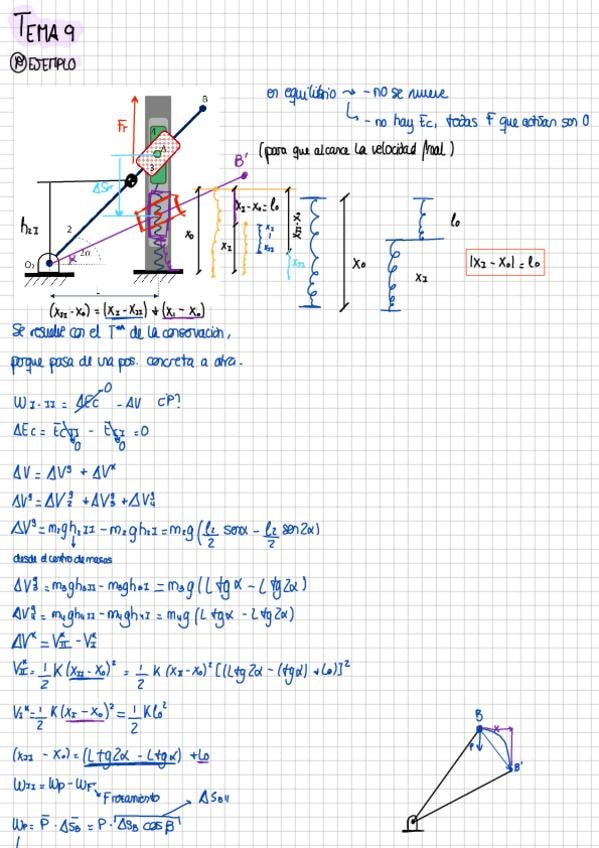 TEMA 9
EJEMPLO
en equilibrio → - no se mueve
- no hay Ec, todas F que actúan son 0
(para que alcance la velocidad final)
B
Fr
1
A
3
B'
ΔSr
h₂I
2
α
2α
O₂
x₀
xI
xI-x₀=l₀
xII
x₀
l₀
xI
|xI - x₀| = l₀
(xII - x₀) = (xI - xII) + (xI - x₀)
Se resuelve con el Tᵐᵃ de la conservación,
porque pasa de una pos. concreta a otra.
WI-II = ΔEc⁰ - ΔV CP?
ΔEc = EcII - EcI = 0
0 0
ΔV = ΔVᵍ + ΔVᵏ
ΔVᵍ = ΔV₂ᵍ + ΔV₃ᵍ + ΔV₄ᵍ
ΔVᵍ = m₂gh₂II - m₂gh₂I = m₂g (l₂/2 senα - l₂/2 sen2α)
desde el centro de masas
ΔV₃ᵍ = m₃ghII - m₃ghI = m₃g (L tgα - L tg2α)
ΔV₄ᵍ = m₄gh₄II - m₄gh₄I = m₄g (L tgα - L tg2α)
ΔVᵏ = VIIᵏ - VIᵏ
VIIᵏ = 1/2 K (xII - x₀)² = 1/2 K (xII - x₀)² [(L tg2α - L tgα) + l₀)]²
VIᵏ = 1/2 K (xI - x₀)² = 1/2 K l₀²
(xII - x₀) = (L tg2α - L tgα) + l₀
WI-II = Wp - WF
Frozamiento
ΔSB
Wp = P̄ · ΔS̄B = P · ΔSB cosβ
B
x
P
B'